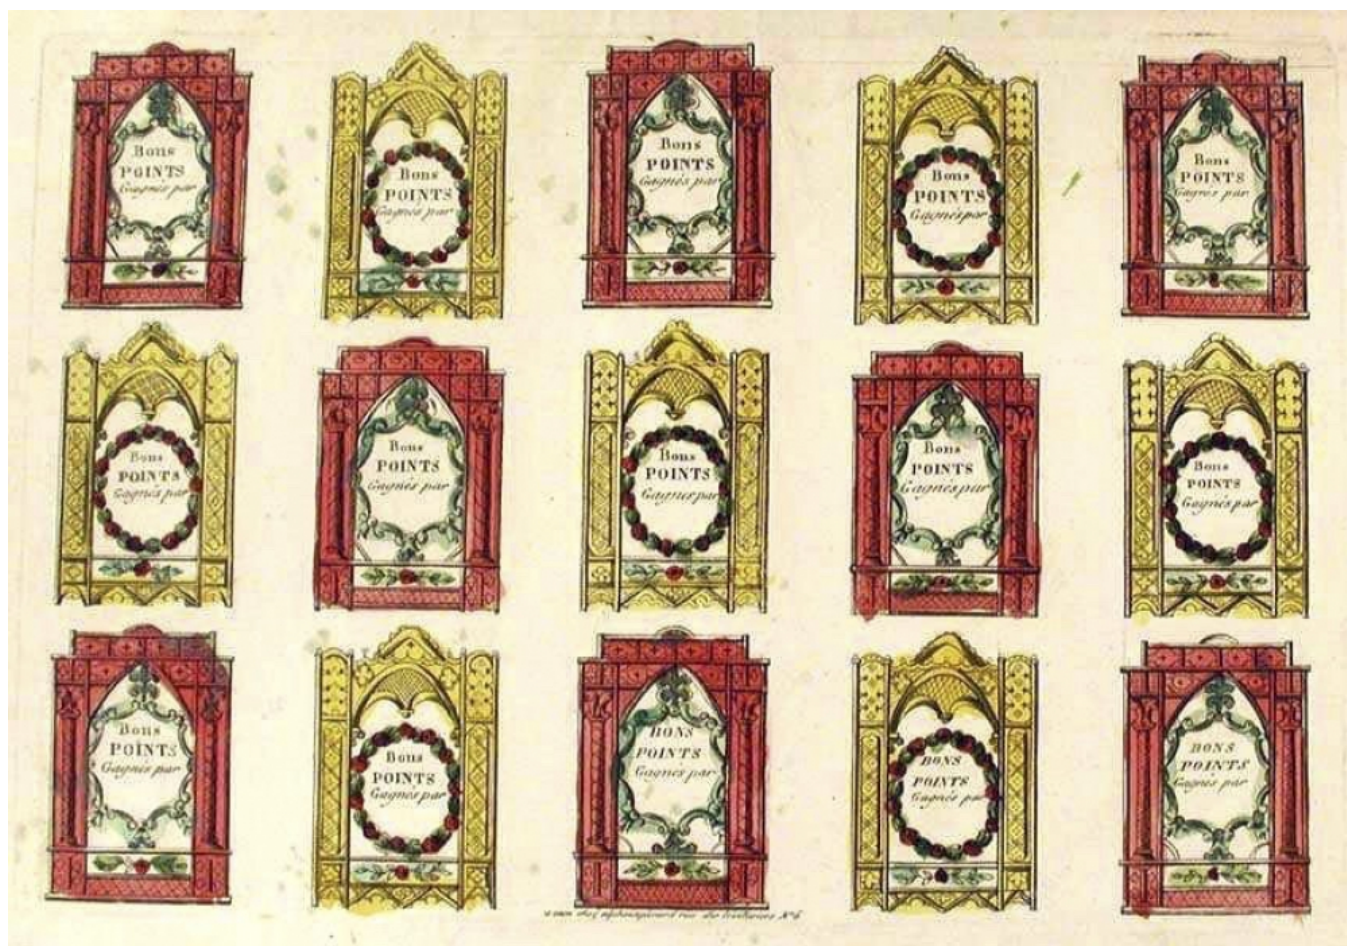 Bons
POINTS
Gagnés par
Bons
POINTS
Gagnés par
Bons
POINTS
Gagnés par
Bons
POINTS
Gagnés par
Bons
POINTS
Gagnés par
Bons
POINTS
Gagnés par
Bons
POINTS
Gagnés par
Bons
POINTS
Gagnés par
Bons
POINTS
Gagnés par
Bons
POINTS
Gagnés par
Bons
POINTS
Gagnés par
Bons
POINTS
Gagnés par
BONS
POINTS
Gagnés par
BONS
POINTS
Gagnés par
BONS
POINTS
Gagnés par
chez rue des N° 6